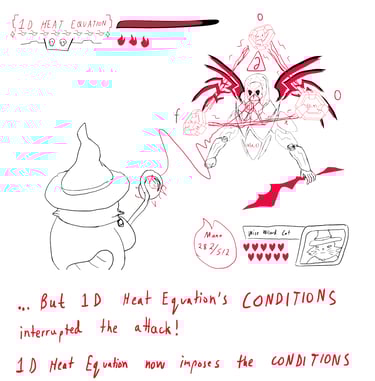 {1D HEAT EQUATION}
0
∂
f
0
u(x,t)
Mana
282/512
Miss Wizard Cat
... But 1D Heat Equation's CONDITIONS
interrupted the attack!
1D Heat Equation now imposes the CONDITIONS